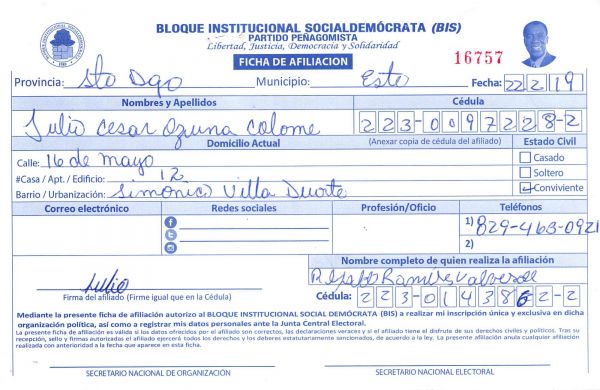 BLOQUE INSTITUCIONAL SOCIALDEMÓCRATA (BIS)
PARTIDO PEÑAGOMISTA
Libertad, Justicia, Democracia y Solidaridad
FICHA DE AFILIACION
16757
Provincia: Sto Dgo Municipio: Este Fecha: 22 2 19
Nombres y Apellidos Cédula
Julio Cesar Ozuna Colome 223-0097228-2
Domicilio Actual (Anexar copia de cédula del afiliado) Estado Civil
Calle: 16 de mayo Casado
#Casa / Apt. / Edificio: 12 Soltero
Barrio / Urbanización: Simonico Villa Duarte Conviviente
Correo electrónico Redes sociales Profesión/Oficio Teléfonos
1) 829-463-0921
2)
Nombre completo de quien realiza la afiliación
Julio Ramires Valverde
Firma del afiliado (Firme igual que en la Cédula) Cédula: 223-0143862-2
Mediante la presente ficha de afiliación autorizo al BLOQUE INSTITUCIONAL SOCIAL DEMÓCRATA (BIS) a realizar mi inscripción única y exclusiva en dicha
organización política, así como a registrar mis datos personales ante la Junta Central Electoral.
La presente ficha de afiliación es válida si los datos ofrecidos por el afiliado son correctos, las declaraciones veraces y si el afiliado tiene el disfrute de sus derechos civiles y políticos. Tras su
recepción, sello y firmas autorizadas el afiliado ejercerá todos los derechos y los deberes estatutariamente sancionados, de acuerdo a la ley. La presente afiliación anula cualquier afiliación
realizada con anterioridad a la fecha que aparece en esta ficha.
SECRETARIO NACIONAL DE ORGANIZACIÓN SECRETARIO NACIONAL ELECTORAL